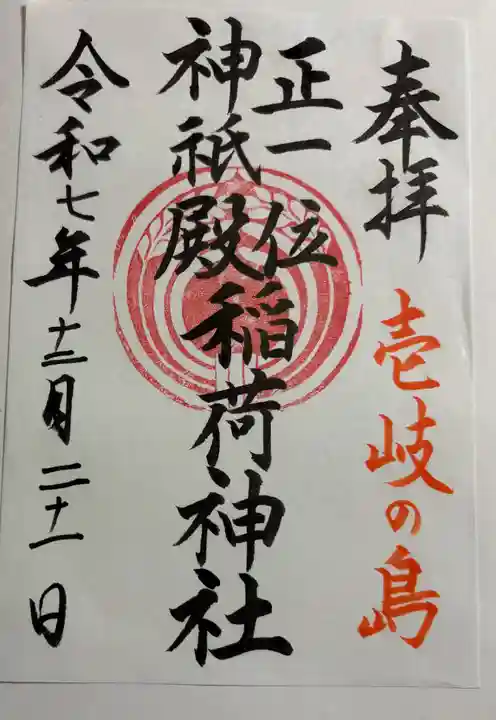 奉拝
壱岐の島
正一位
神祇殿
稲荷神社
令和七年十二月二十一日